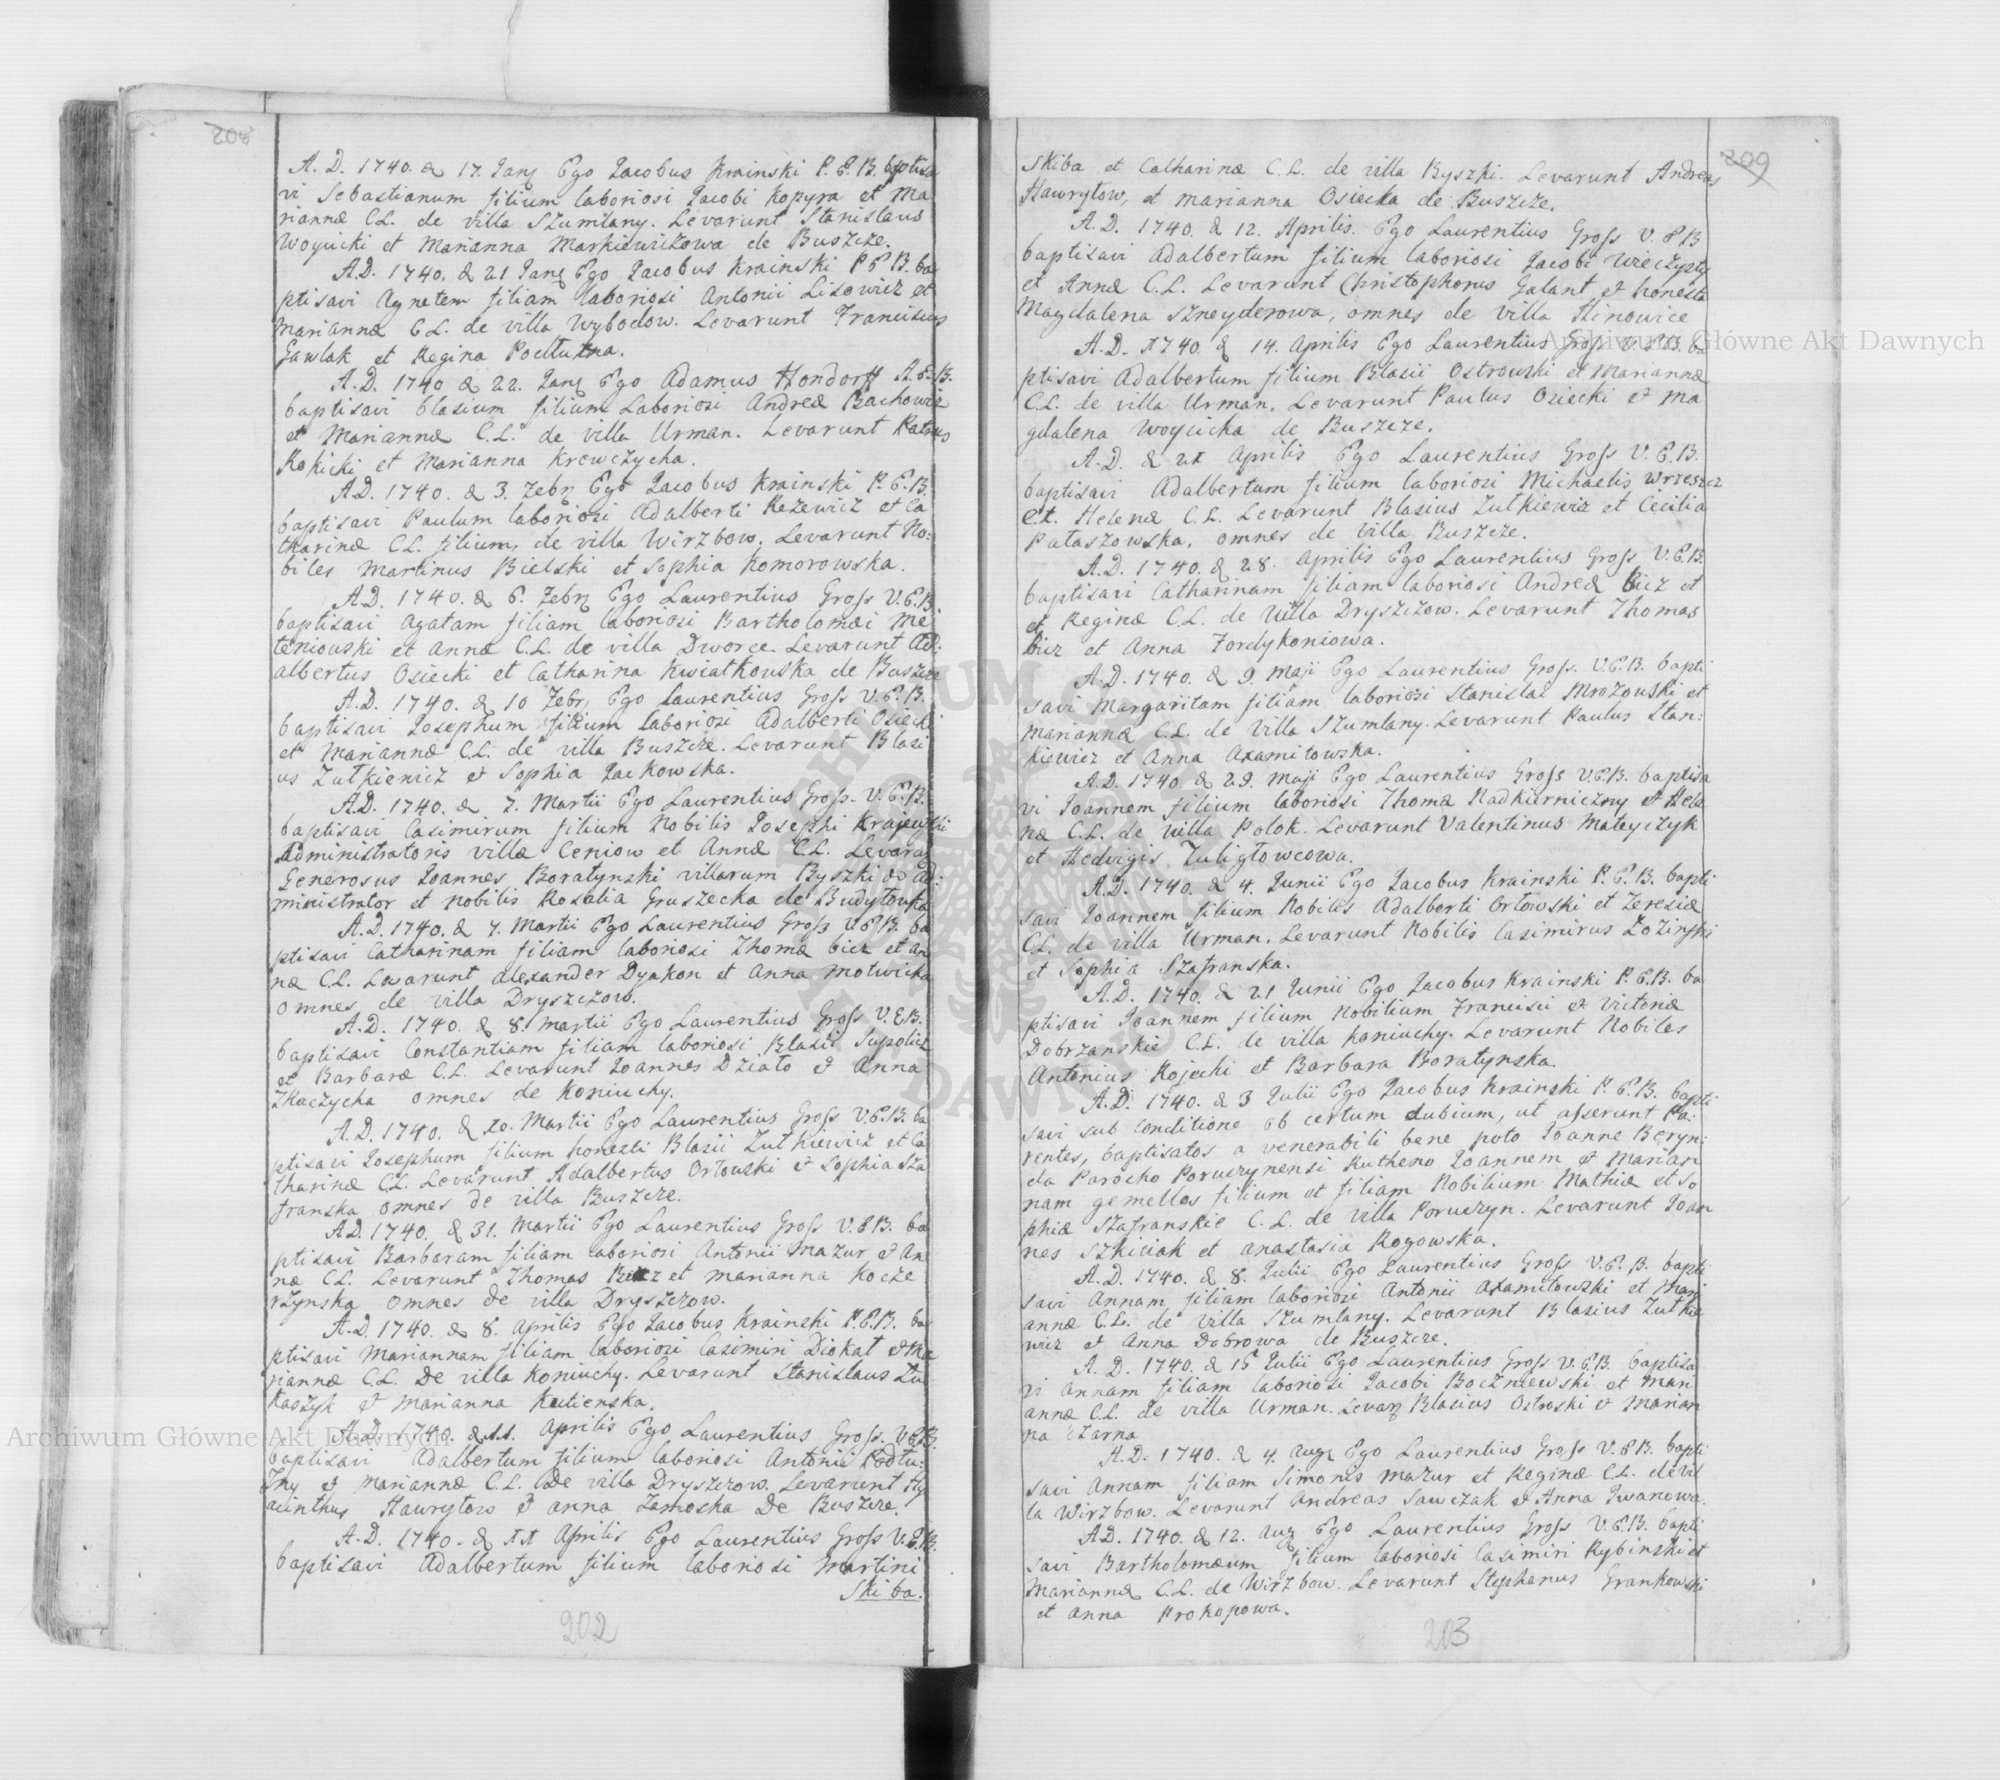 208
A. D. 1740. d 17. Janȝ Ego Jacobus Krainski P. E. B. baptisa
vi Sebastianum filium laboriosi Jacobi Kopyra et Ma
riannæ C.L. de villa Szumlany. Levarunt Stanislaus
Woyucki et Marianna Markiewizowa de Buszcze.
A.D. 1740. d 21 Janȝ Ego Jacobus Krainski P E B. ba
ptisavi Agnetem filiam laboriosi Antonii Lisowicz et
Mariannæ C L. de villa Wybodow. Levarunt Franciscus
Gawlak et Regina
A.D. 1740 d 22. Janȝ Ego Adamus Hondorff A. E. B.
baptisavi Blasium filium Laboriosi Andreæ Bachowicz
et Mariannæ C.L. de villa Urman. Levarunt
Rokicki et Marianna Krewczycha.
A.D. 1740. d 3. Febrȝ Ego Jacobus Krainski P. E. B.
baptisavi Paulum laboriosi Adalberti Rezewicz et Ca
tharinæ C.L. filium, de villa Wirzbow. Levarunt No:
biles Martinus Bielski et Sophia Komorowska.
A.D. 1740. d 6. Febrȝ Ego Laurentius Gross V.E.B.
baptisavi Agatam filiam laboriosi Bartholomæi Me
teniowski et Annæ C.L. de villa Dworce. Levarunt Ad:
albertus Osiecki et Catharina Kwiatkowska de Buszcze
A.D. 1740. d 10 Febrȝ Ego Laurentius Gross V.E.B.
baptisavi Josephum filium laboriosi Adalberti Osiecki
et Mariannæ C.L. de villa Buszcze. Levarunt Blasi
us Zutkiewicz et Sophia Jackowska.
A.D. 1740. d 7. Martii Ego Laurentius Gross. V.E.B.
baptisavi Casimirum filium Nobilis Josephi Krajewski
Administratoris villæ Ceniow et Annæ C.L. Levarȝ
Generosus Joannes Boratynski villarum Byszki &c Ad:
ministrator et Nobilis Rosalia Gruszecka de Budytowka
A.D. 1740. d 7. Martii Ego Laurentius Gross V.E.B. ba
ptisavi Catharinam filiam laboriosi Thomæ Bicz et An
næ C.L. Levarunt Alexander Dyakon et Anna Motwicka
omnes de villa Dryszczow.
A.D. 1740. d 8. Martii Ego Laurentius Gross V.E.B.
baptisavi Constantiam filiam laboriosi Blasii
et Barbaræ C.L. Levarunt Joannes Dziato et Anna
Tkaczycha omnes de Koniuchy.
A.D. 1740. d 20. Martii Ego Laurentius Gross V.E.B. ba
ptisavi Josephum filium honesti Blasii Zutkiewicz et Ca
tharinæ C.L. Levarunt Adalbertus Ortowski et Sophia Sza
franska omnes de villa Buszcze.
A.D. 1740. d 31. Martii Ego Laurentius Gross V.E.B. ba
ptisavi Barbaram filiam laboriosi Antonii Mazur et An
næ C.L. Levarunt Thomas Bicz et Marianna Kocze
rzynska omnes de villa Dryszczow.
A.D. 1740. d 8. Aprilis Ego Jacobus Krainski P.E.B. ba
ptisavi Mariannam filiam laboriosi Casimiri Diokat et Ma
riannæ C.L. De villa Koniuchy. Levarunt Stanislaus Lu
kaszyk et Marianna
A.D. 1740. d 11. Aprilis Ego Laurentius Gross. V.E.B.
baptisavi Adalbertum filium laboriosi Antonii Podtu:
Zny et Mariannæ C.L. De villa Dryszczow. Levarunt Hy
acinthus Hawrytow et Anna Zamoska De Buszcze.
A.D. 1740. d 11 Aprilis Ego Laurentius Gross V.E.B.
baptisavi Adalbertum filium laboriosi Martini
Skiba.
202
209
Skiba et Catharinæ C.L. de villa Byszki. Levarunt Andreas
Hawrytow, et Marianna Osiecka de Buszcze.
A.D. 1740. d 12. Aprilis. Ego Laurentius Gross V.E.B
baptisavi Adalbertum filium laboriosi Jacobi
et Annæ C.L. Levarunt Christophorus Galant et honesta
Magdalena Szneyderowa, omnes de villa Hinowice
A.D. 1740. d 14. Aprilis Ego Laurentius Gross V.E.B. ba
ptisavi Adalbertum filium Blasii Ostrowski et Mariannæ
C.L. de villa Urman. Levarunt Paulus Osiecki et Ma
gdalena Woycicka de Buszcze.
A.D. d 21 Aprilis Ego Laurentius Gross V.E.B.
baptisavi Adalbertum filium laboriosi Michaelis Wrzeszcz
et Helenæ C.L. Levarunt Blasius Zutkiewicz et Cecilia
Pataszowska, omnes de villa Buszcze.
A.D. 1740. d 28. Aprilis Ego Laurentius Gross V.E.B.
baptisavi Catharinam filiam laboriosi Andreæ Bicz et
et Reginæ C.L. de villa Dryszczow. Levarunt Thomas
Bicz et Anna Fordykoniowa.
A.D. 1740. d 9. Maji Ego Laurentius Gross. V.E.B. bapti
savi Margaritam filiam laboriosi Stanislai Mrozowski et
Mariannæ C.L. de villa Szumlany. Levarunt Paulus Stan:
kiewicz et Anna Axamitowska.
A.D. 1740 d 29. Maji Ego Laurentius Gross V.E.B. baptisa
vi Joannem filium laboriosi Thomæ Nadkurniczny et Hele
næ C.L. de villa Potok. Levarunt Valentinus Mateyczyk
et Hedvigis
A.D. 1740. d 4. Junii Ego Jacobus Krainski P.E.B. bapti
savi Joannem filium Nobilis Adalberti Ortowski et Teresiæ
C.L. de villa Urman. Levarunt Nobilis Casimirus Lozinski
et Sophia Szafranska.
A.D. 1740. d 21 Junii Ego Jacobus Krainski P.E.B. ba
ptisavi Joannem filium Nobilium Francisci et Victoriæ
Dobrzanskie C.L. de villa Koniuchy. Levarunt Nobiles
Antonius Kojecki et Barbara Boratynska.
A.D. 1740. d 3 Julii Ego Jacobus Krainski P.E.B. bapti
savi sub conditione ob certum dubium, ut asserunt Pa:
rentes, baptisatos a venerabili bene poto Joanne Beryn:
da Parocho Poruczynensi Rutheno Joannem et Marian
nam gemellos filium et filiam Nobilium Mathiæ et So
phiæ Szafranskie C.L. de villa Poruczyn. Levarunt Joan
nes Szkiciak et Anastasia Rogowska.
A.D. 1740. d 8. Julii Ego Laurentius Gross V.E.B. bapti
savi Annam filiam laboriosi Antonii Axamitowski et Mari
annæ C.L. de villa Szumlany. Levarunt Blasius Zutkie
wicz et Anna Dobrowa de Buszcze.
A.D. 1740. d 15 Julii Ego Laurentius Gross V.E.B. baptisa
vi Annam filiam laboriosi Jacobi Boczniewski et Mari
annæ C.L. de villa Urman. Levarȝ Blasius Ostroski et Marian
na Czarna
A.D. 1740. d 4. Augȝ Ego Laurentius Gross V.E.B. bapti
savi Annam filiam Simonis Mazur et Reginæ C.L. de vil
la Wirzbow. Levarunt Andreas Sawczak et Anna Iwanowa.
A.D. 1740. d 12. Augȝ Ego Laurentius Gross V.E.B. bapti
savi Bartholomæum filium laboriosi Casimiri Rybinski et
Mariannæ C.L. de Wirzbow. Levarunt Stephanus Grankowski
et Anna Prokopowa.
203
Archiwum Główne Akt Dawnych
Archiwum Główne Akt Dawnych